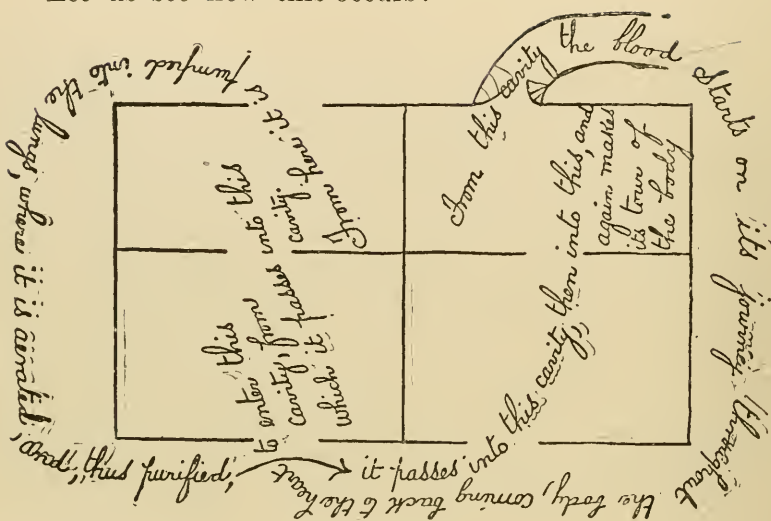 Let us see how this occurs.
From this cavity the blood
starts on its journey throughout
the body, coming back to the heart
to enter this
cavity, from
which it passes into this
cavity.
From here it is pumped into the lungs, where it is aerated,
and, thus purified,
it passes into this cavity, then into this, and
again makes
its tour of
the body